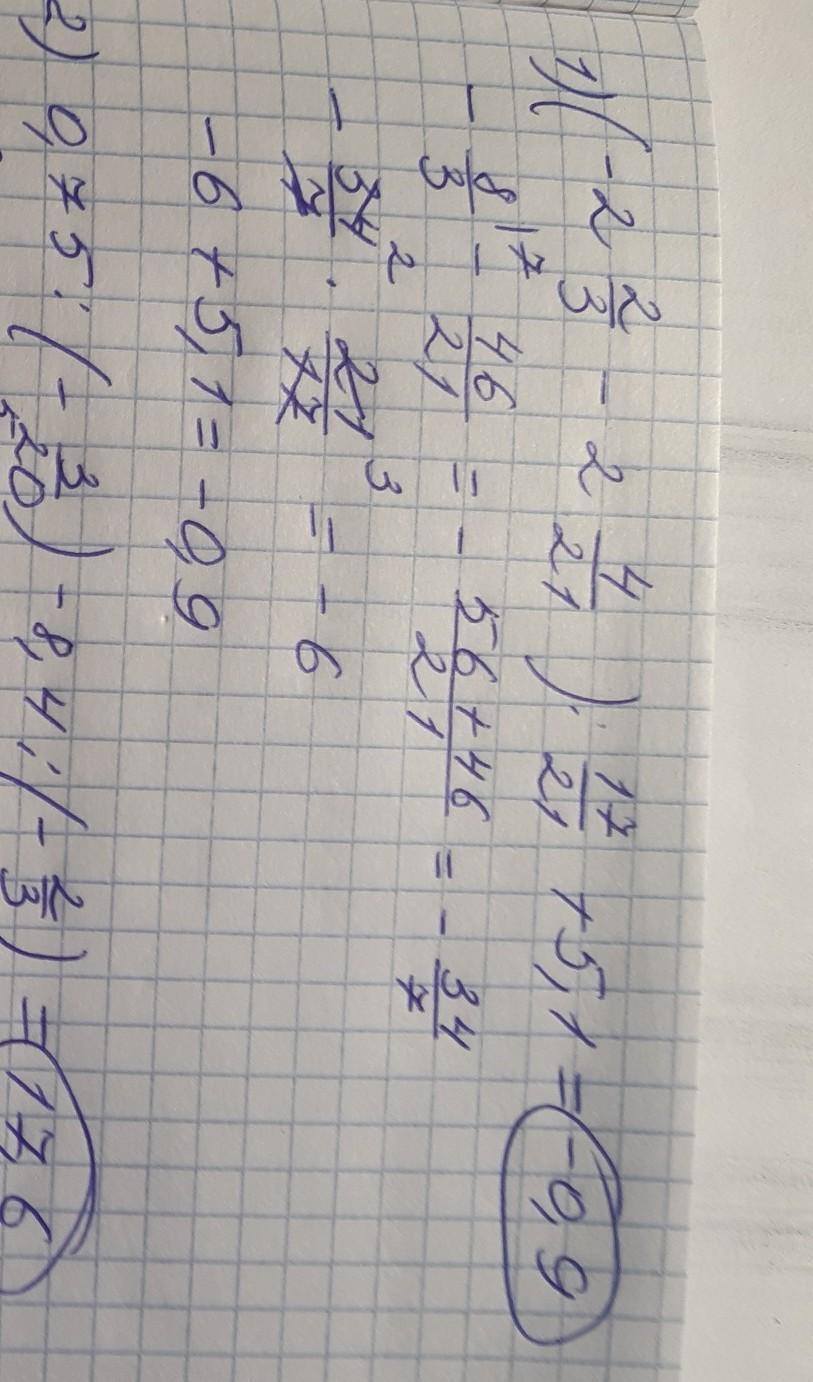 1) (-2 2/3 - 2 4/21) : 17/21 + 5,1 = -0,9
- 8/3 |7 - 46/21 = - 56+46/21 = - 34/7
- 34/7 2 · 21/17 3 = - 6
-6 + 5,1 = -0,9
2) 0,75 : (- 3/20) - 8,4 : (- 2/3) = 17,6